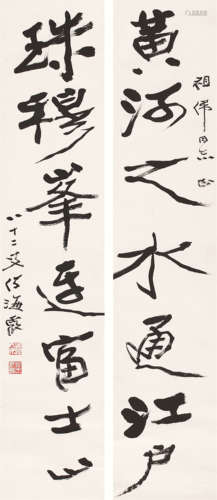 黄河之水通江户
祖伟同志正
珠穆峯连富士山
八十二叟何海霞